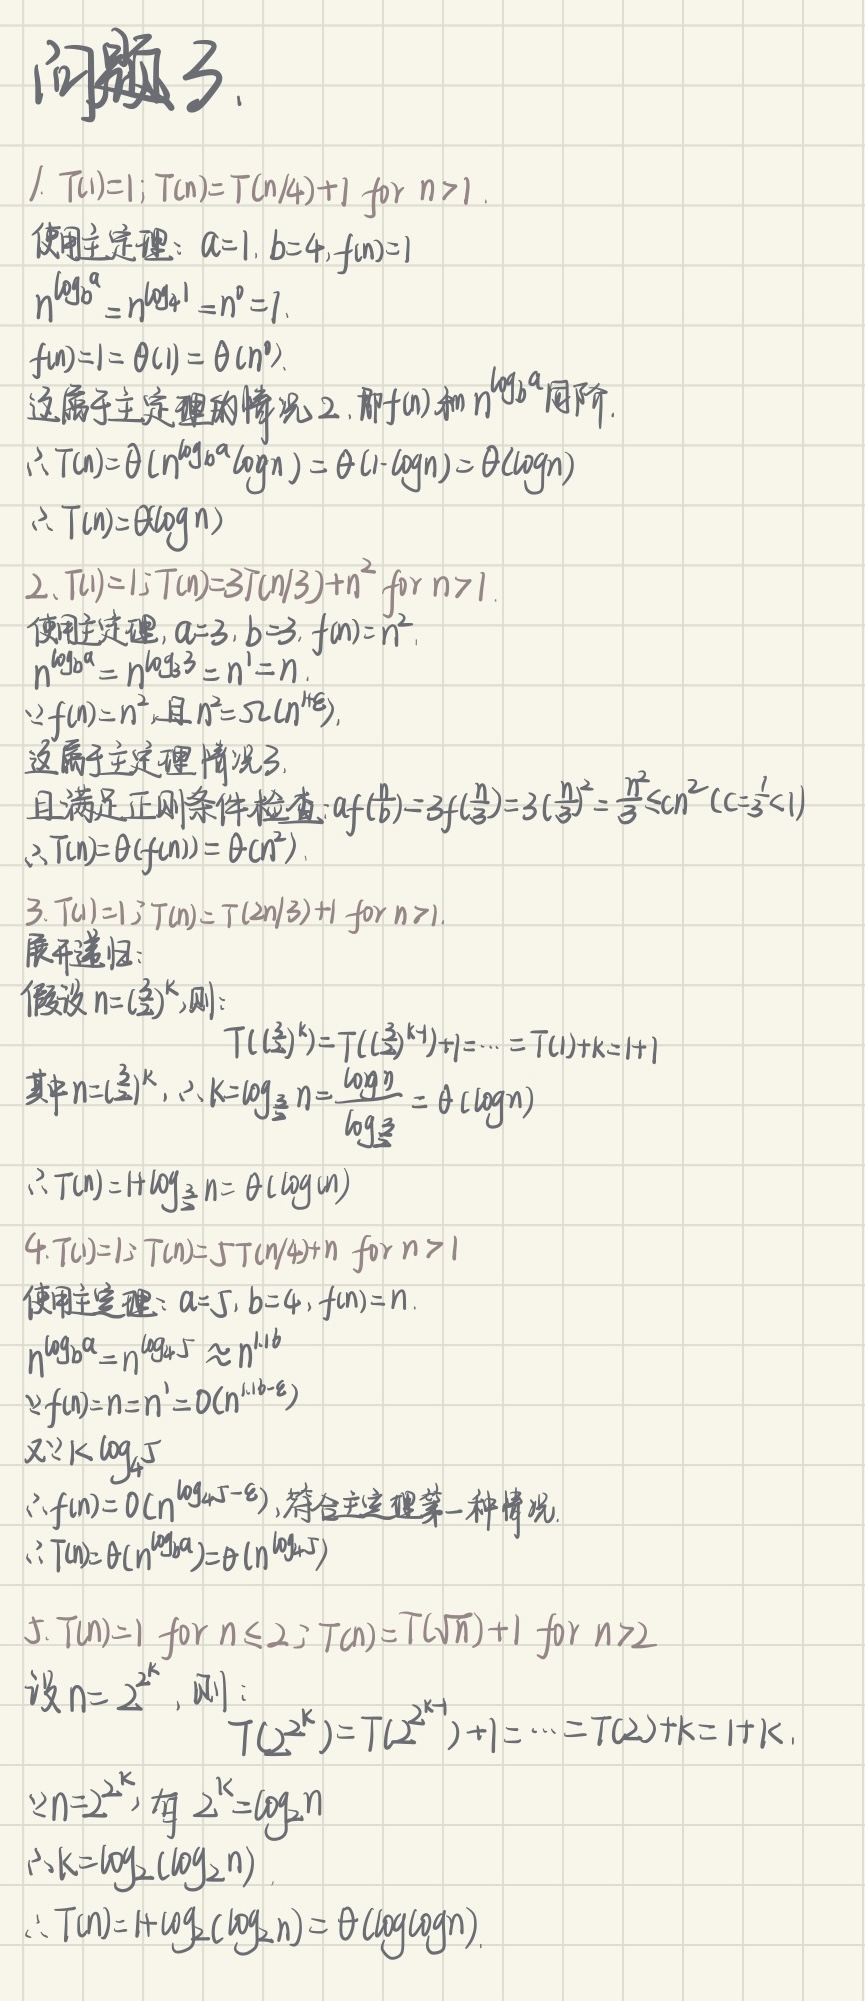 问题3.
1. T(1)=1; T(n)=T(n/4)+1 for n>1.
使用主定理: a=1, b=4, f(n)=1
n^{log_b a} = n^{log_4 1} = n^0 = 1.
f(n)=1=θ(1)=θ(n^0).
这属于主定理的情况2, 即f(n)和n^{log_b a}同阶.
∴T(n)=θ(n^{log_b a} log n)=θ(1·log n)=θ(log n)
∴T(n)=θ(log n)
2. T(1)=1; T(n)=3T(n/3)+n^2 for n>1.
使用主定理, a=3, b=3, f(n)=n^2.
n^{log_b a} = n^{log_3 3} = n^1 = n.
∵f(n)=n^2, 且n^2=Ω(n^{1+ε}),
这属于主定理情况3.
且满足正则条件检查: af(n/b)=3f(n/3)=3(n/3)^2=n^2/3≤cn^2 (c=1/3<1)
∴T(n)=θ(f(n))=θ(n^2).
3. T(1)=1; T(n)=T(2n/3)+1 for n>1.
展开递归:
假设n=(3/2)^k, 则:
T((3/2)^k)=T((3/2)^{k-1})+1=…=T(1)+k=1+1
其中n=(3/2)^k, ∴k=log_{3/2} n = log n / log 3/2 = θ(log n)
∴T(n)=1+log_{3/2} n=θ(log(n)
4. T(1)=1; T(n)=5T(n/4)+n for n>1
使用主定理: a=5, b=4, f(n)=n.
n^{log_b a} = n^{log_4 5} ≈ n^{1.16}
∵f(n)=n=n^1=O(n^{1.16-ε})
又∵1<log_4 5
∴f(n)=O(n^{log_4 5-ε}), 符合主定理第一种情况.
∴T(n)=θ(n^{log_b a})=θ(n^{log_4 5})
5. T(n)=1 for n≤2; T(n)=T(√n)+1 for n>2
设n=2^{2^k}, 则:
T(2^{2^k})=T(2^{2^{k-1}})+1=…=T(2)+k=1+k.
∵n=2^{2^k}, 有 2^k=log_2 n
∴k=log_2(log_2 n).
∴T(n)=1+log_2(log_2 n)=θ(log log n).